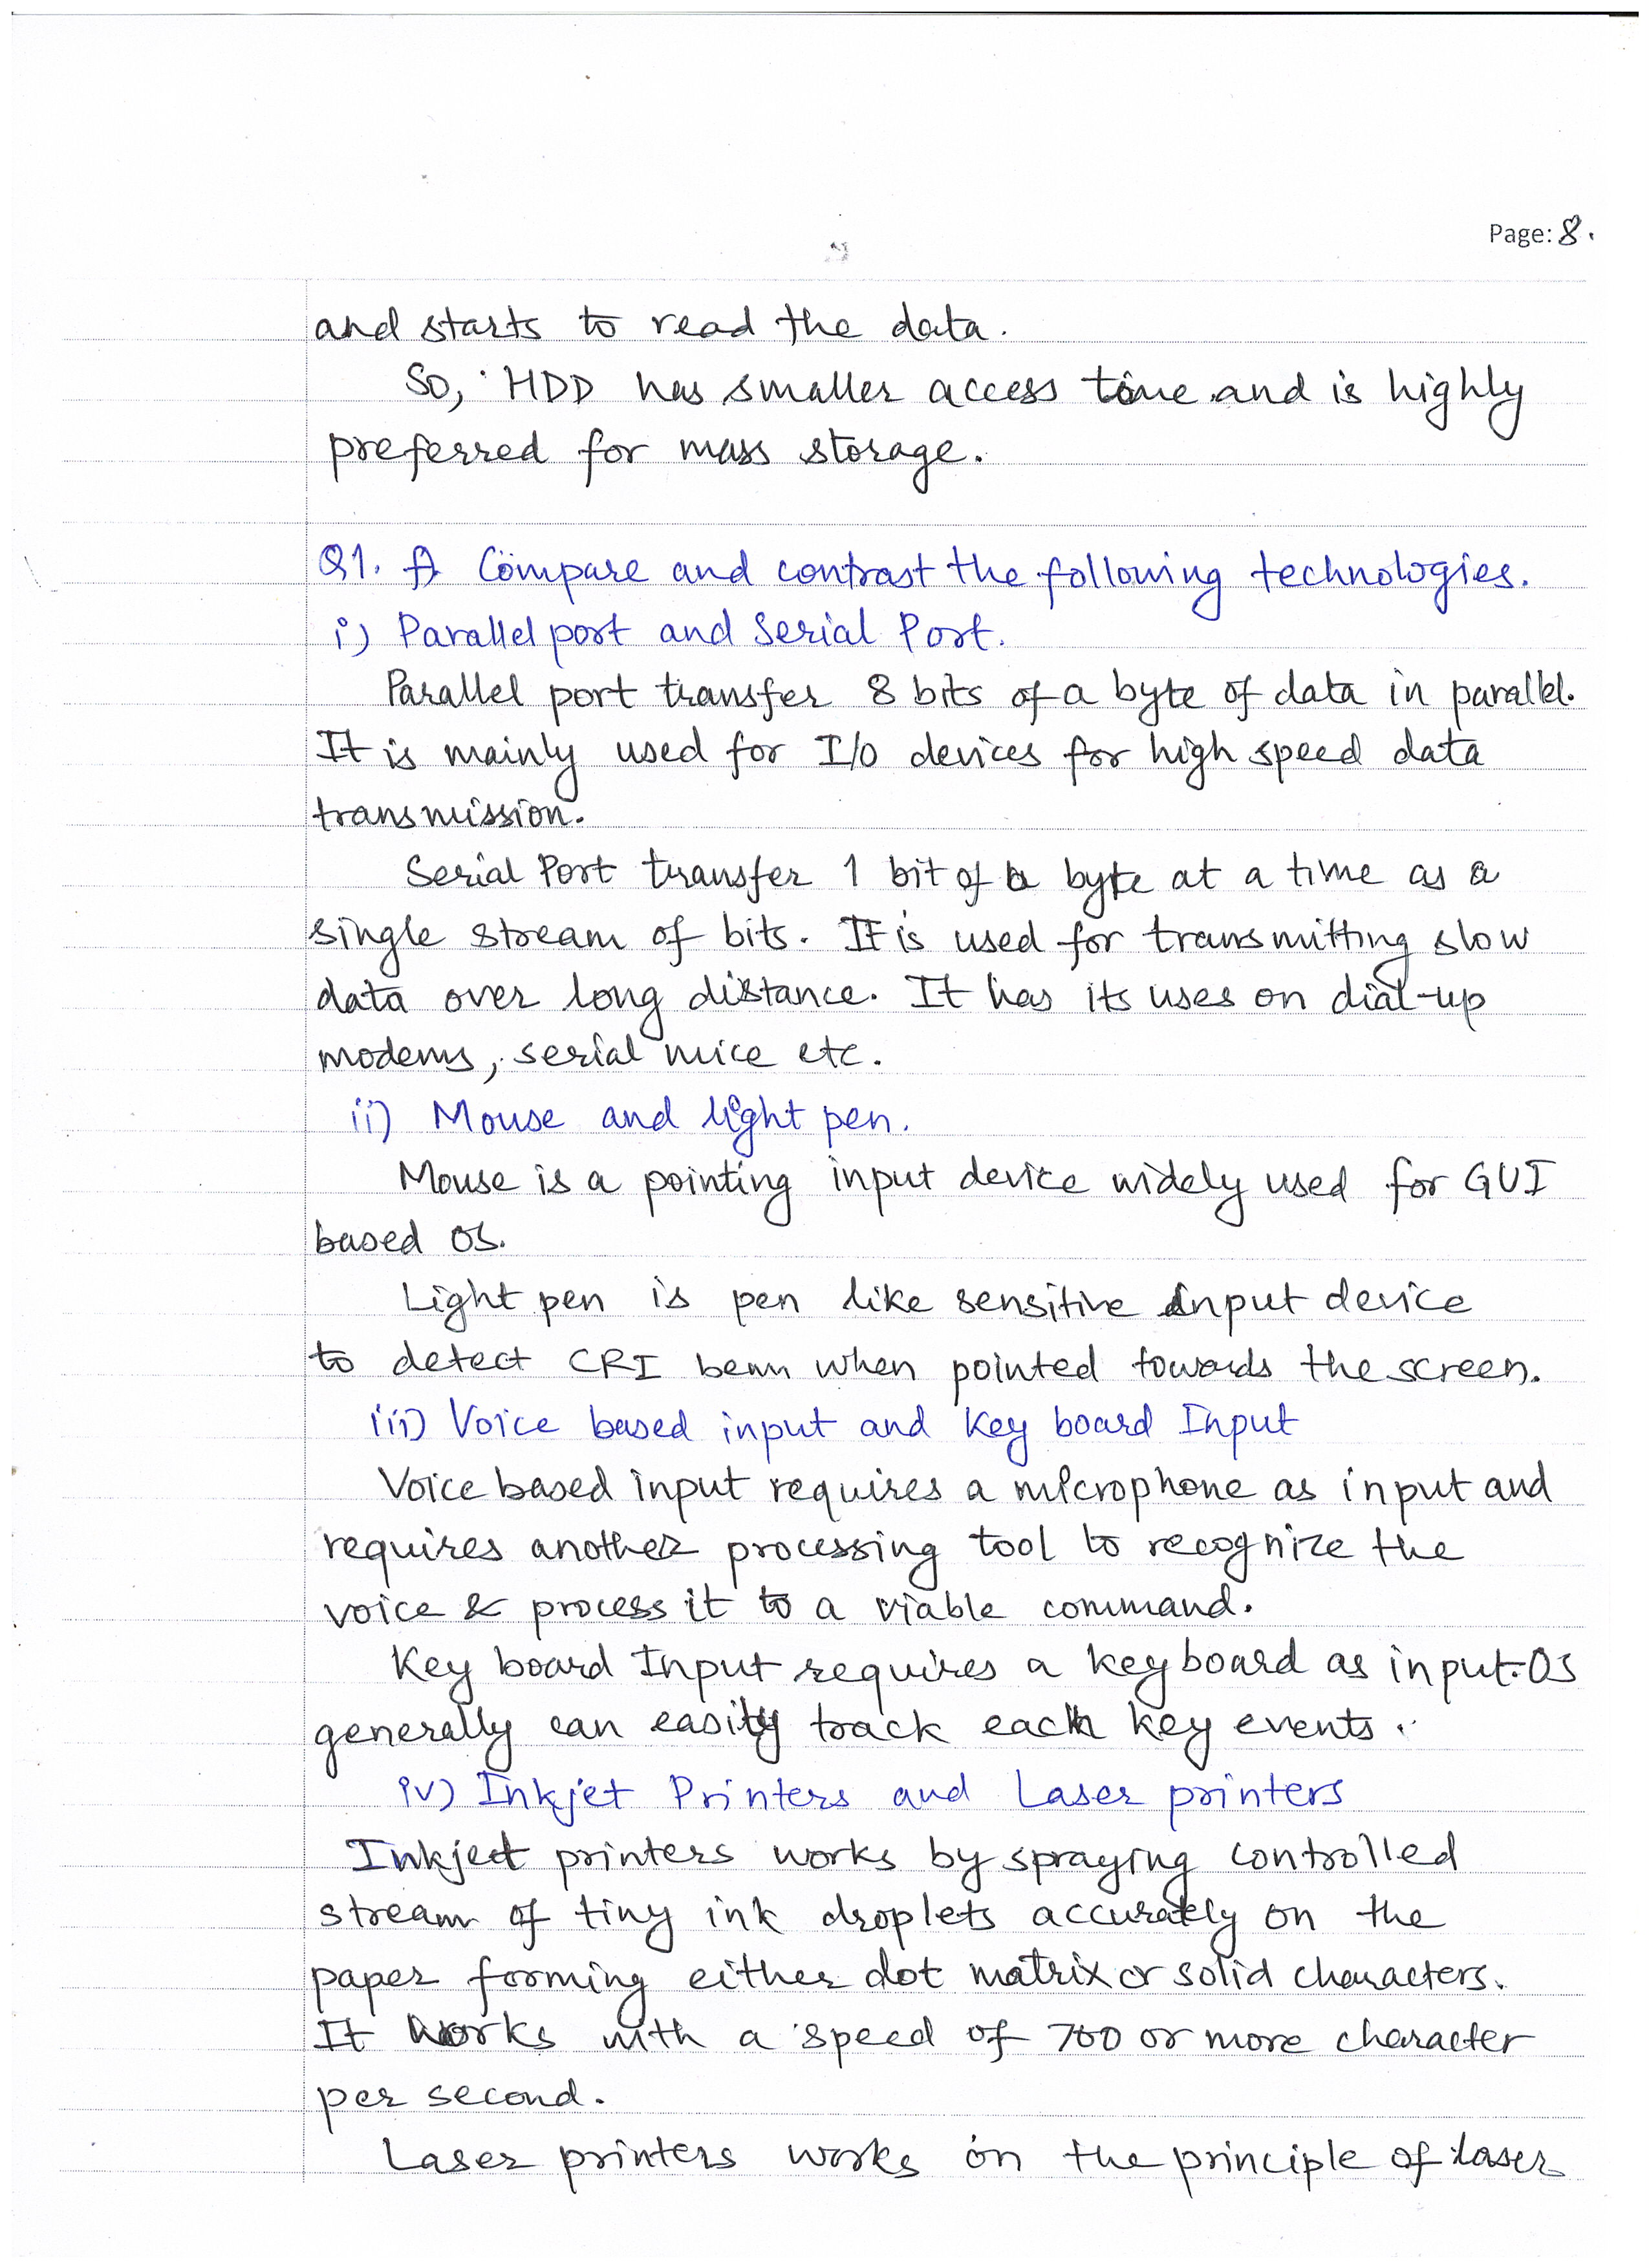 Page: 8.
and starts to read the data.
So, HDD has smaller access time and is highly
preferred for mass storage.
Q1. f) Compare and contrast the following technologies.
i) Parallel port and Serial Port.
Parallel port transfer 8 bits of a byte of data in parallel.
It is mainly used for I/O devices for high speed data
transmission.
Serial Port transfer 1 bit of a byte at a time as a
single stream of bits. It is used for transmitting slow
data over long distance. It has its uses on dial-up
modems, serial mice etc.
ii) Mouse and light pen.
Mouse is a pointing input device widely used for GUI
based OS.
Light pen is pen like sensitive input device
to detect CRI beam when pointed towards the screen.
iii) Voice based input and Key board Input
Voice based input requires a microphone as input and
requires another processing tool to recognize the
voice & process it to a viable command.
Key board Input requires a key board as input. OS
generally can easily track each key events.
iv) Inkjet Printers and Laser printers
Inkject printers works by spraying controlled
stream of tiny ink droplets accurately on the
paper forming either dot matrix or solid characters.
It works with a speed of 700 or more character
per second.
Laser printers works on the principle of laser